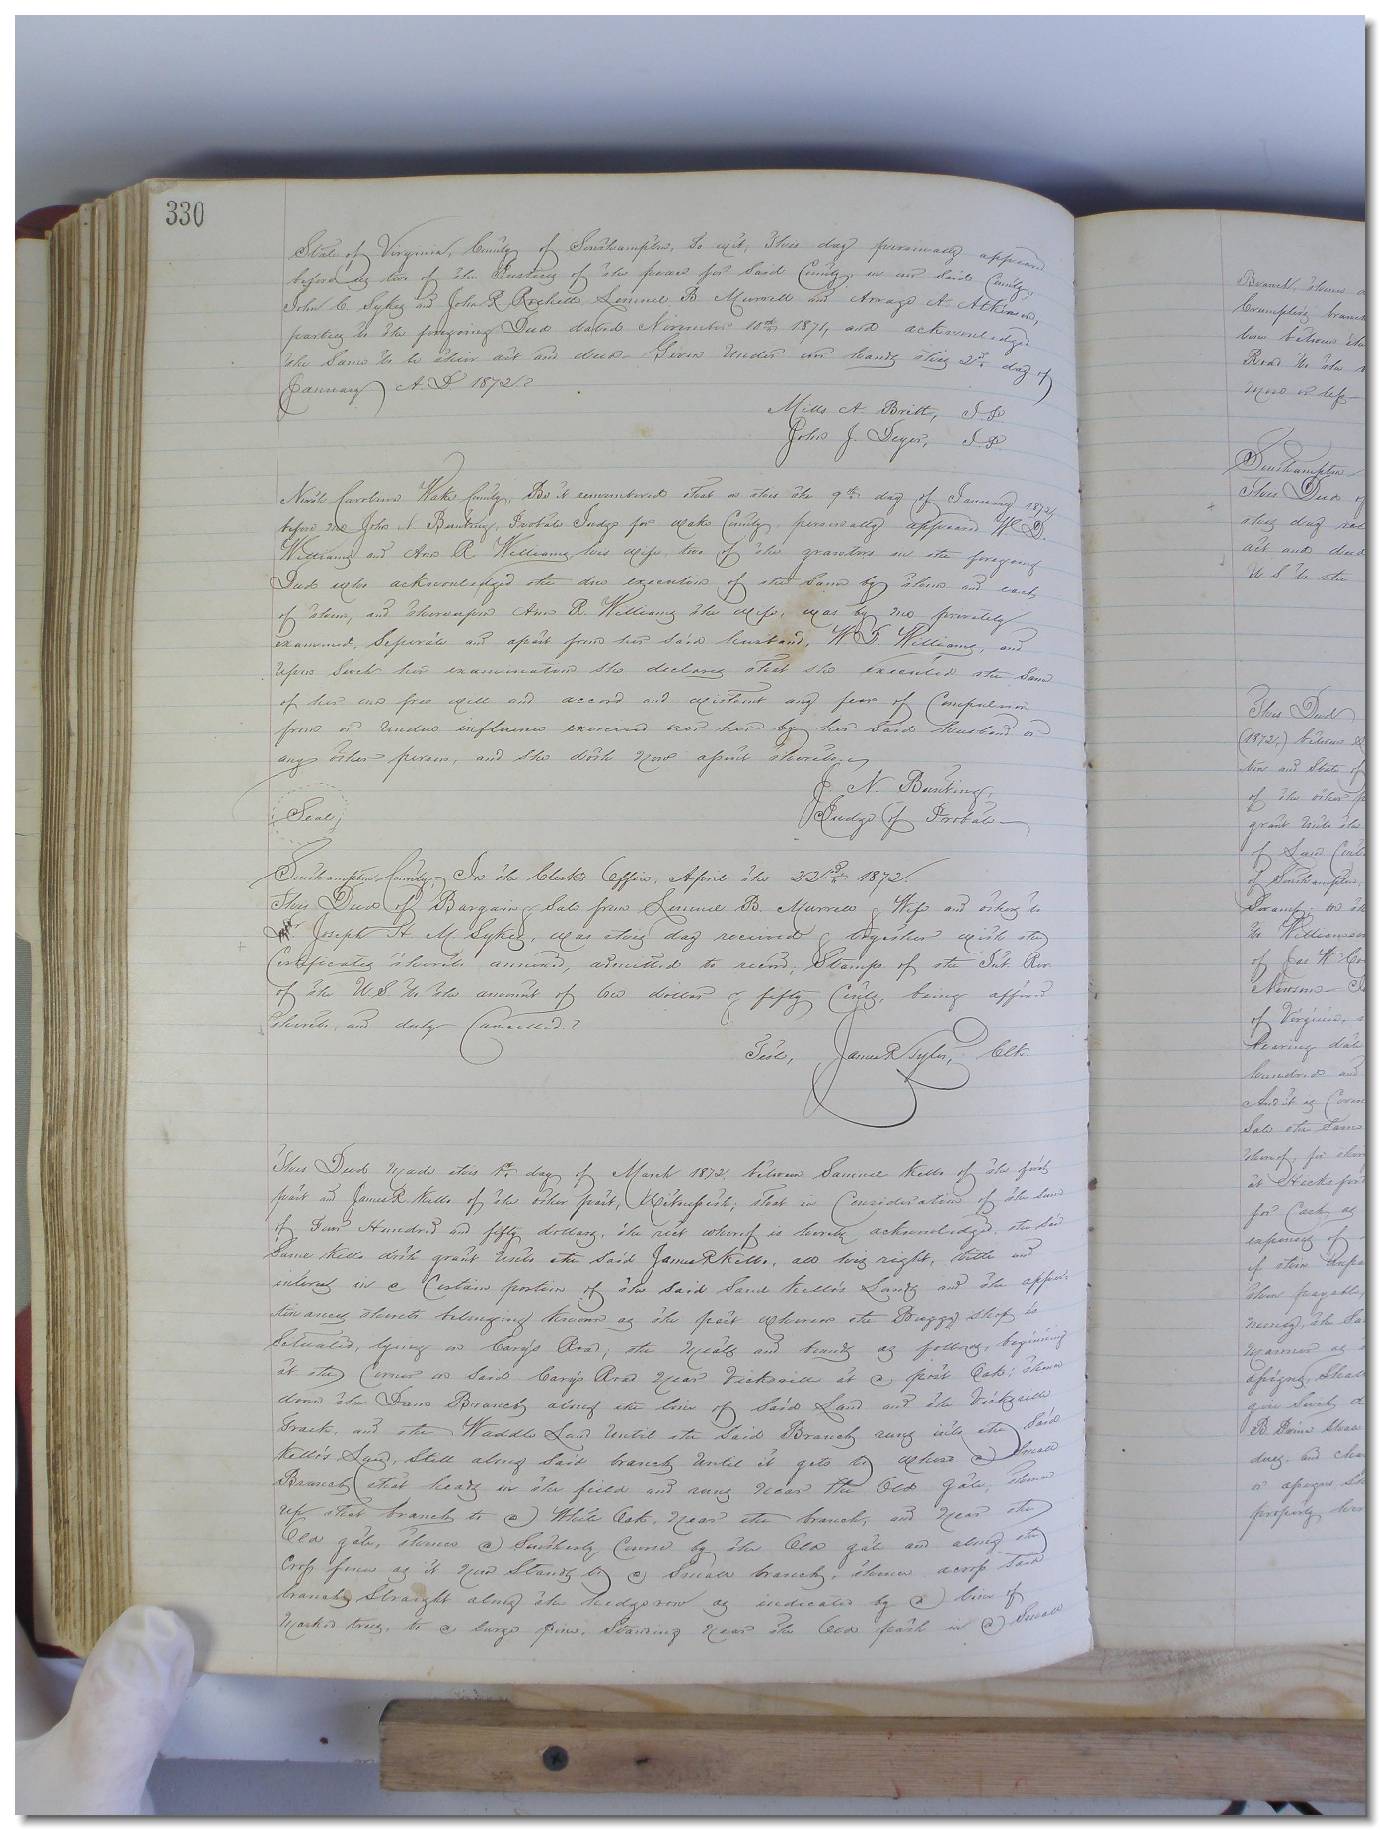 330
State of Virginia, County of Southampton, to wit; This day personally appeared
before us two of the Justices of the peace for said County, in our said County,
John C. Sykes and John R Rochelle Lemuel B Murrell and A. Atkinson,
parties to the foregoing Deed dated November 10th 1871, and acknowledged
the same to be their act and deed. Given under our hands this day of
January A.D 1872.
Mills A. Britt, J.P.
John J. J.P.
North Carolina Wake County, Be it remembered that on this the 9th day of January 1872,
before me John N Bunting, Probate Judge for Wake County, personally appeared
Williams and Ann R. Williams his wife, two of the grantors in the foregoing
Deed who acknowledged the due execution of the same by them and each
of them, and thereupon Ann R. Williams the wife, was by me privately
examined, Seperate and apart from her said husband, Williams, and
upon such her examination she declares that she executed the same
of her own free will and accord and without any fear of Compulsion
from or undue influence exercised over her by her said Husband or
any other person, and she doth now assent thereto.
J. N. Bunting,
Seal, Judge of Probate
Southampton County, In the Clerks Office, April the 1872.
This Deed of Bargain & Sale from Lemuel B. Murrell & Wife and others to
Joseph H. M. Sykes, was this day received & together with the
Certificates thereto annexed, admitted to record, Stamps of the Int. Rev.
of the U.S. to the amount of dollars & fifty Cents, being affixed
thereto, and duly Cancelled.
Teste, James R Tyler, Clk.
This Deed made this 1st day of March 1872, between Samuel Kello of the first
part and James R. Kello of the other part, Witnesseth; that in Consideration of the sum
of Four Hundred and fifty dollars, the rect whereof is hereby acknowledged, the said
Saml Kello doth grant unto the said James R Kello, all his right, title and
interest in a Certain portion of the said Saml Kello's Lands and the appur-
tenances thereto belonging known as the part whereon the Buggy shop is
Situated, lying on Cary's Road, the and bounds as follows, beginning
at the Corner on said Cary's Road near Vicksville at a post Oak; thence
down the Branch along the line of said Land and the Vicksville
Tract, and the Waddle Land until the said Branch runs into the said
Kello's Land, Still along said branch until it gets to where a small
Branch that heads in the field and runs near the Old gate, thence
up that branch to a White Oak, near the branch, and near the
Old gate, thence a Southerly Course by the Old gate and along the
Cross fence as it now Stands to a Small branch, thence across said
branch, Straight along the hedgerow as indicated by a line of
Marked trees, to a large pine, Standing near the Old path in a Small
Southampton
This Deed of
this day
act and deed
U S to the
This Deed
(1872,) between
and State of
of the other
grant unto the
of Land
of Southampton,
Swamp
to Williamson
of Jas W
Newsom
of Virginia,
bearing date
hundred and
Sale the same
at Hicksford
for Cash, as
expenses of
then payable,
money, the
manner as
assigns, shall
property